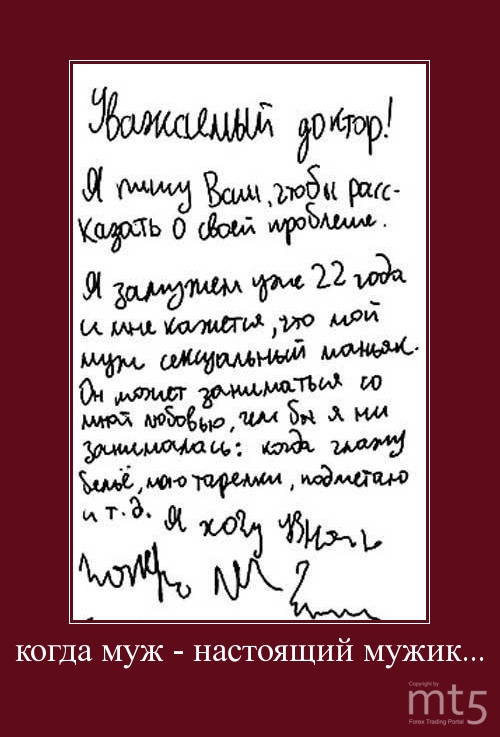 Уважаемый доктор!
Я пишу Вам, чтобы расс-
казать о своей проблеме.
Я замужем уже 22 года
и мне кажется, что мой
муж сексуальный маньяк.
Он может заниматься со
мной любовью, чем бы я ни
занималась: когда глажу
бельё, мою тарелки, подметаю
и т.д. Я хочу узнать
когда муж - настоящий мужик...
Copyright by
mt5
Forex Trading Portal